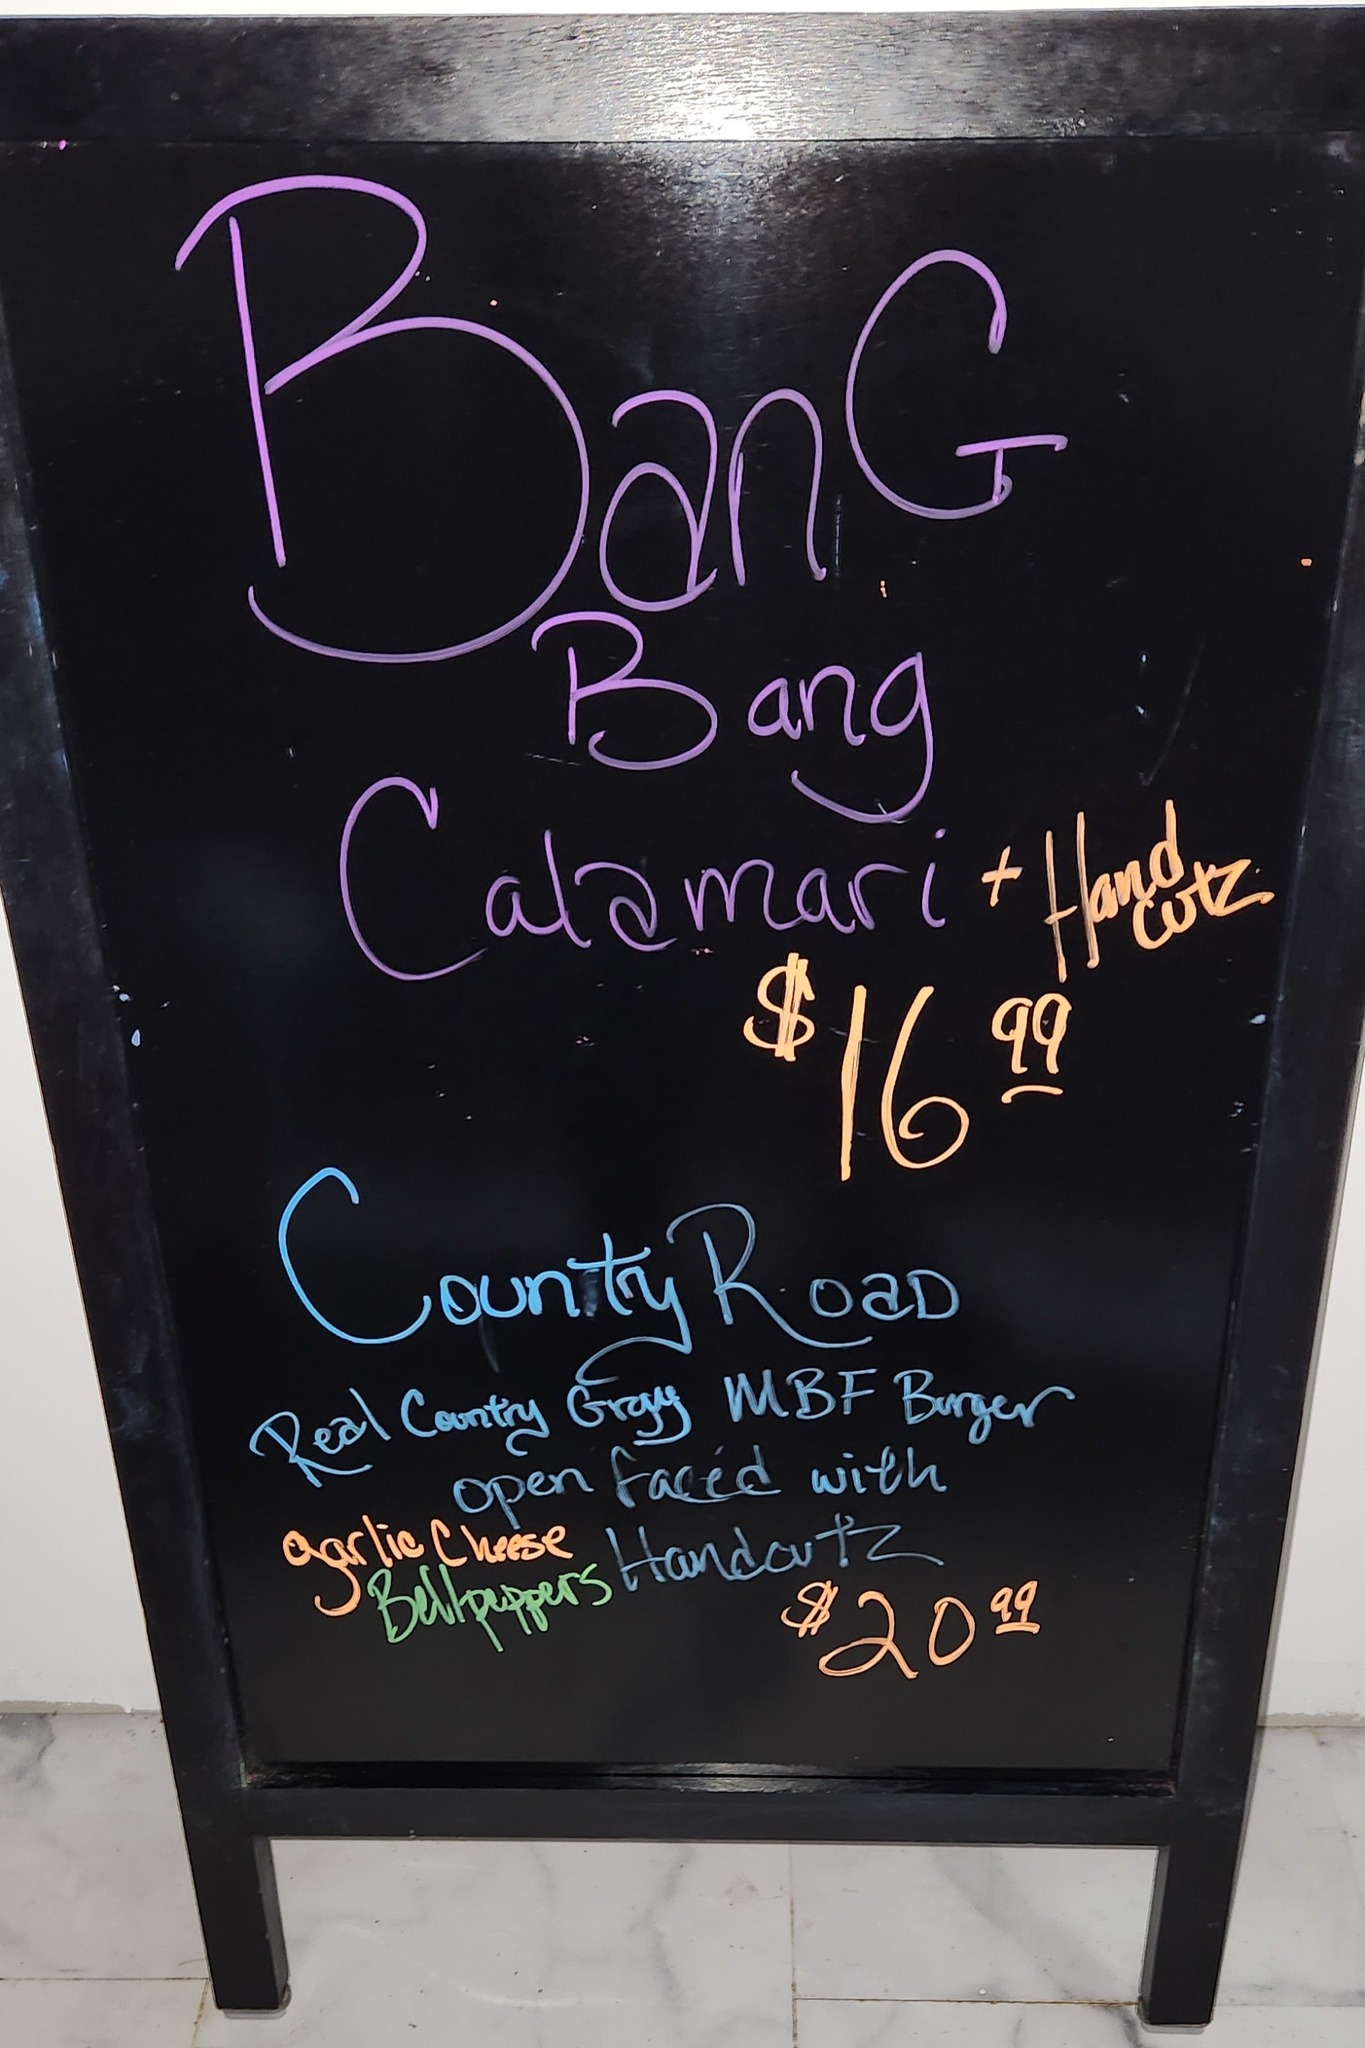 BanG
Bang
Calamari + Hand cutz
$16 99
Country Road
Real Country Gravy MBF Burger
open faced with
garlic Cheese Handcutz
Bellpeppers
$20 99